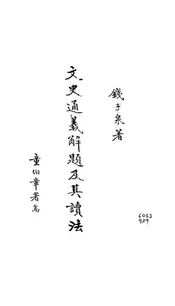 錢子泉著
文史通義解題及其讀法
童伯章著耑
6023
929